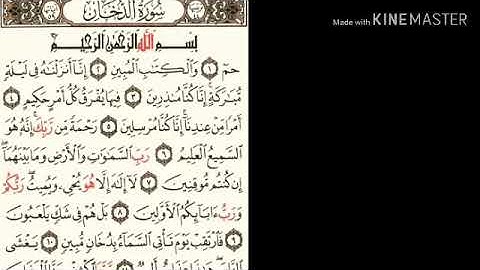 سورة الدخان
بسم الله الرحمن الرحيم
حمٓ ١ وَٱلْكِتَٰبِ ٱلْمُبِينِ ٢ إِنَّآ أَنزَلْنَٰهُ فِى لَيْلَةٍ
مُّبَٰرَكَةٍ إِنَّا كُنَّا مُنذِرِينَ ٣ فِيهَا يُفْرَقُ كُلُّ أَمْرٍ حَكِيمٍ ٤
أَمْرًا مِّنْ عِندِنَآ إِنَّا كُنَّا مُرْسِلِينَ ٥ رَحْمَةً مِّن رَّبِّكَ إِنَّهُۥ هُوَ
ٱلسَّمِيعُ ٱلْعَلِيمُ ٦ رَبِّ ٱلسَّمَٰوَٰتِ وَٱلْأَرْضِ وَمَا بَيْنَهُمَآ
إِن كُنتُم مُّوقِنِينَ ٧ لَآ إِلَٰهَ إِلَّا هُوَ يُحْىِۦ وَيُمِيتُ رَبُّكُمْ
وَرَبُّ ءَابَآئِكُمُ ٱلْأَوَّلِينَ ٨ بَلْ هُمْ فِى شَكٍّ يَلْعَبُونَ
٩ فَٱرْتَقِبْ يَوْمَ تَأْتِى ٱلسَّمَآءُ بِدُخَانٍ مُّبِينٍ ١٠ يَغْشَى
Made with KINEMASTER